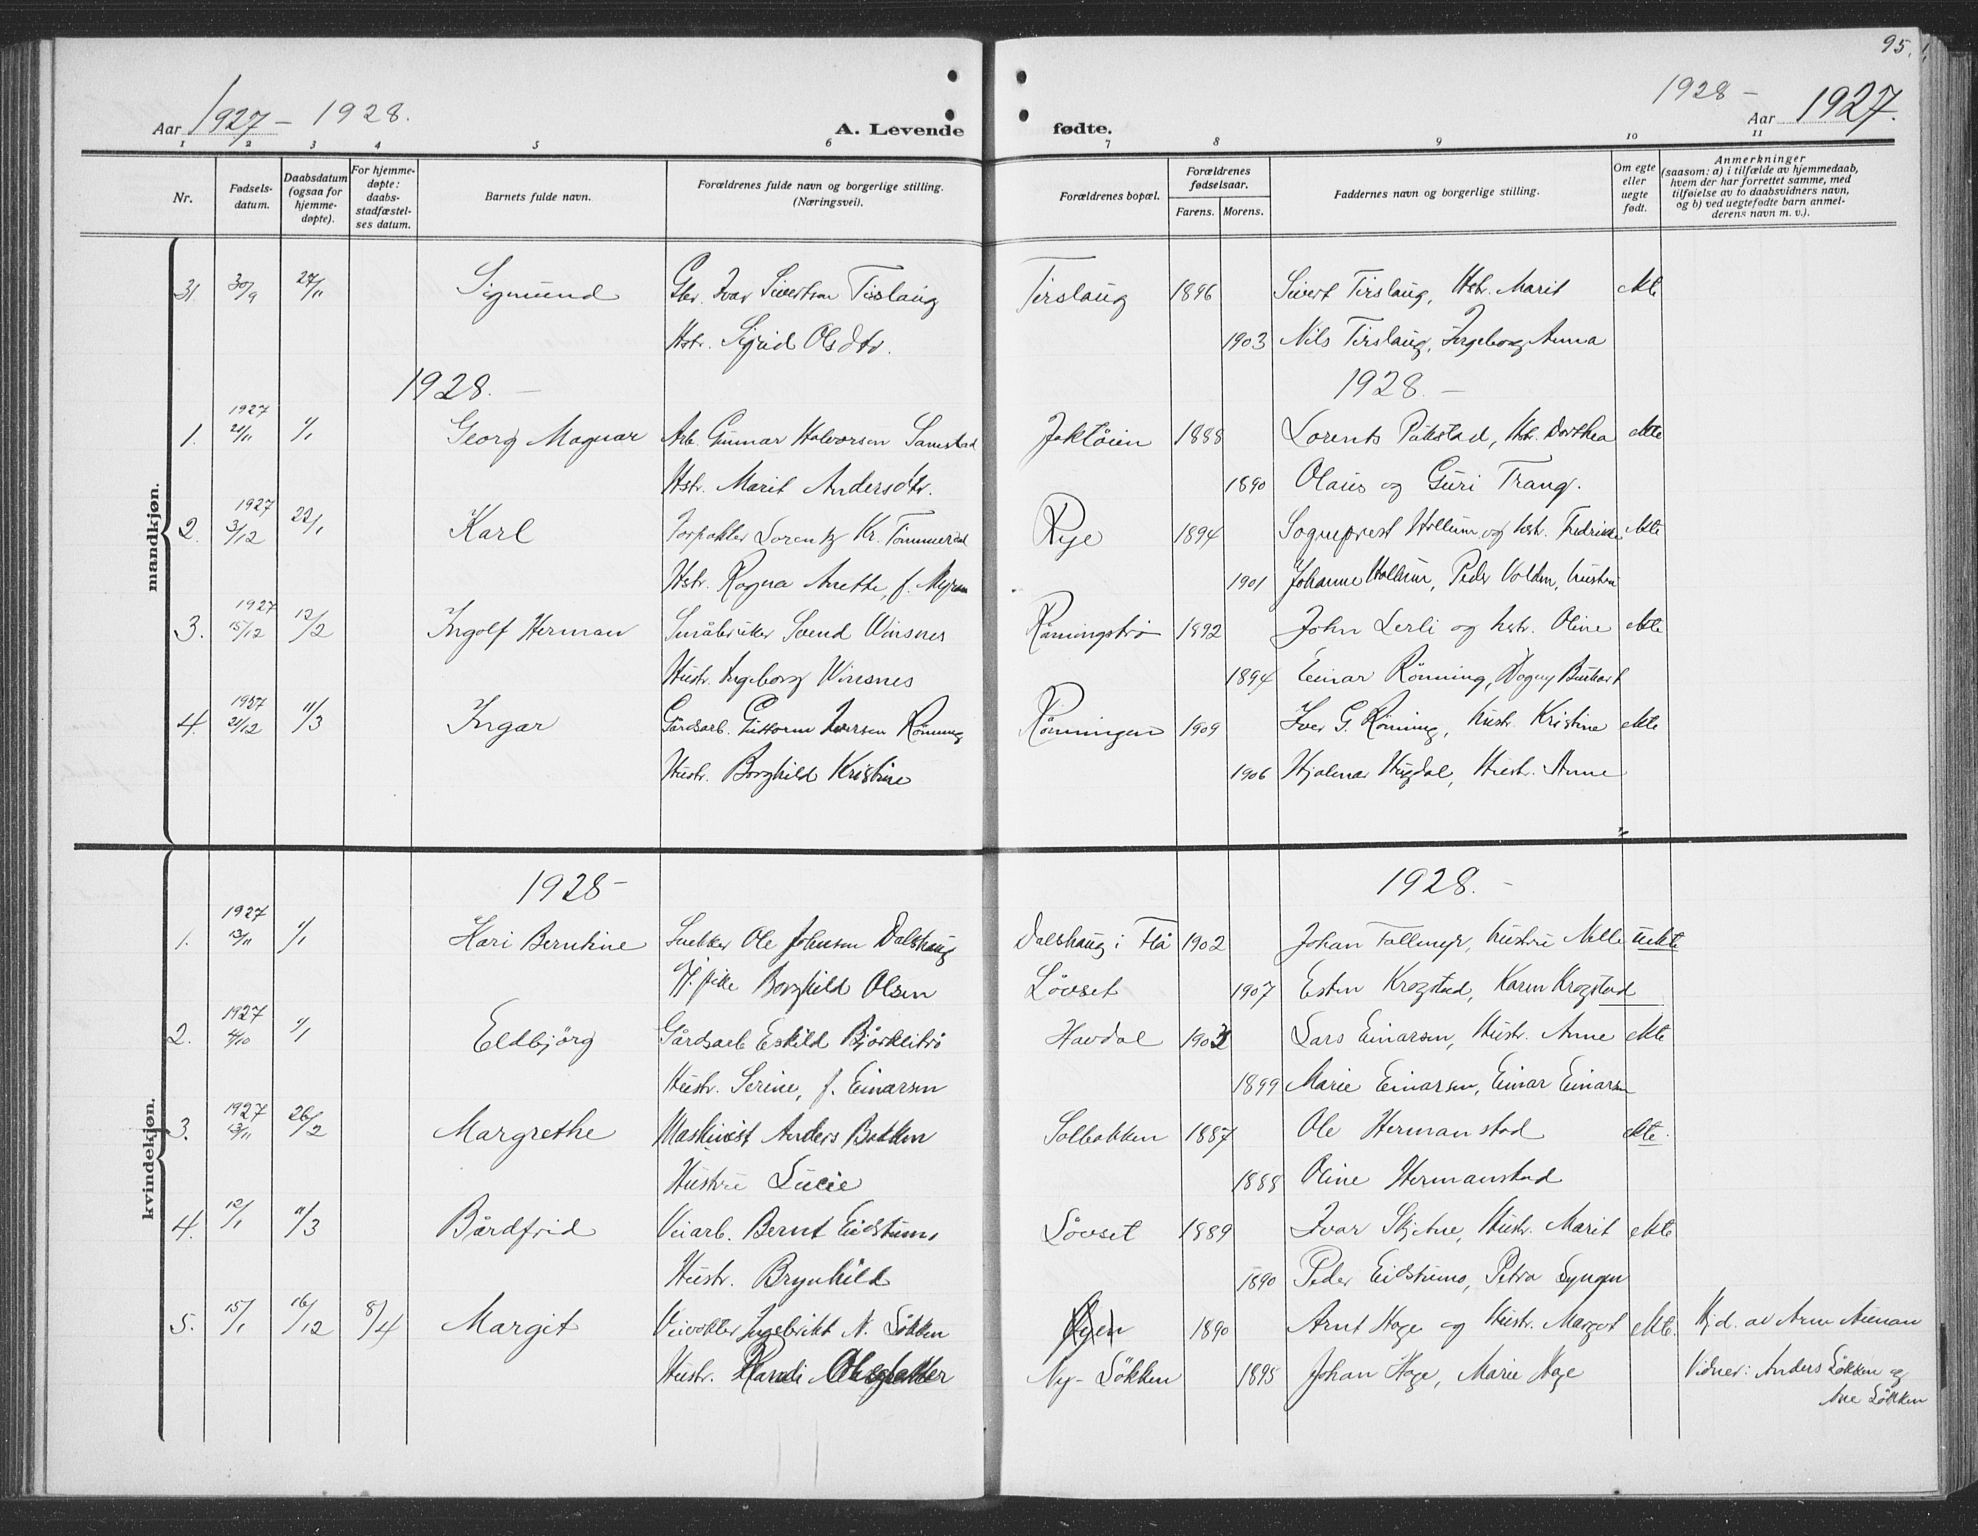 95.
Aar 1927 - 1928. A. Levende fødte. 1928 - Aar 1927.
1 2 3 4 5 6 7 8 9 10 11
Nr. Fødsels-datum. Daabsdatum (ogsaa for hjemme-døpte). For hjemme-døpte: daabs-stadfæstel-ses datum. Barnets fulde navn. Forældrenes fulde navn og borgerlige stilling. (Næringsvei). Forældrenes bopæl. Forældrenes fødselsaar. Farens. Morens. Faddernes navn og borgerlige stilling. Om egte eller uegte født. Anmerkninger (saasom: a) i tilfælde av hjemmedaab, hvem der har forrettet samme, med tilføielse av to daabsvidners navn, og b) ved uegtefødte barn anmel-derens navn m. v.).
mandkjøn.
31. 30/9 27/11 Sigmund Gbr. Ivar Sivertsen Tirslaug Tirslaug 1896 Sivert Tirslaug, Hstr. Marit ekte
Hstr. Sigrid Olsdtr. 1903 Nils Tirslaug, Ingeborg Anna
1928. - 1928. -
1927
1. 21/11 1/1 Georg Magnar Arb. Gunnar Halvorsen Samstad Jaktøien 1888 Lorents Påkstad, Hstr. Dorthea ekte
Hstr. Marit Andersdtr. 1890 Olaus og Guri Trang.
1927
2. 3/12 22/1 Karl Forpakter Lorentz Kr. Tømmerdal Rye 1894 Sogneprest Hollum og hstr. Fredrikke ekte
Hstr. Ragna Anette, f. Myran 1901 Johanne Hollum, Peder Volden, hustru
1927
3. 15/12 12/2 Ingolf Herman Småbruker Svend Winsnes Rønningstrø 1892 John Lerli og hstr. Oline ekte
Hustr. Ingeborg Winsnes 1894 Einar Rønning, Dagny Burhart
1957
4. 21/12 11/3 Ingar Gårdsarb. Guttorm Iversen Rønning Rønningen 1909 Iver G. Rønning, hustr. Kristine ekte
Hustr. Borghild Kristine 1906 Hjalmar Hugdal, Hustr. Anne
kvindekjøn.
1928 - 1928. -
1927
1. 13/11 1/1 Kari Berntine Snekker Ole Johnsen Dalshaug Dalshaug i Flå 1902 Johan Tallmyr, hustru Nelle uekte
Pike Borghild Olsen Løvset 1907 Esten Krogstad, Karen Krogstad
1927
2. 4/10 1/1 Eldbjörg Gårdsarb Eskild Bjørklitrø Havdal 1902 Lars Einarsen, Hustr. Anne ekte
Hustr. Serine, f. Einarsen 1899 Marie Einarsen, Einar Einarsen
1927
3. 13/11 26/2 Margrethe Maskinist Anders Bakken Solbakken 1887 Ole Hermanstad ekte.
Hustru Lucie 1888 Oline Hermanstad
4. 12/1 11/3 Bårdfrid Veiarb. Bernt Eidstumo Løvset 1889 Ivar Skjetne, Hustr. Marit ekte
Hustr. Brynhild 1890 Peder Eidstumo, Petra Lyngen
5. 15/1 16/12 8/4 Margit Veivokter Ingebrikt N. Løkken Øyen 1890 Arnt Hage og Hustr. Margot ekte. Hjd. av Arne Aunan
Hustr. Randi Ny-Løkken 1895 Johan Hage, Marie Hage Vidner: Anders Løkken og
Ane Løkken